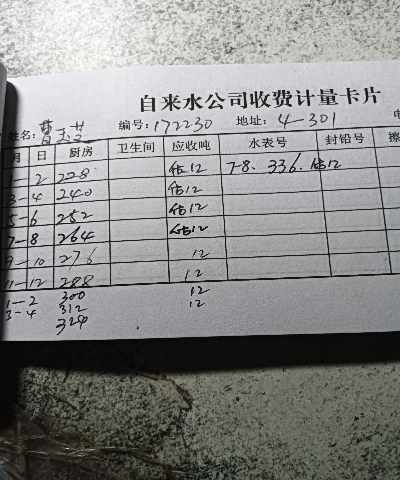 自来水公司收费计量卡片
姓名: 编号: 172230 地址: 4-301
月 日 厨房 卫生间 应收吨 水表号 封铅号
2 228 估12 7-8. 336. 估12
3-4 240 估12
5-6 252 估12
7-8 264 估12
9-10 276 12
11-12 288 12
1-2 300 12
3-4 312 12
324